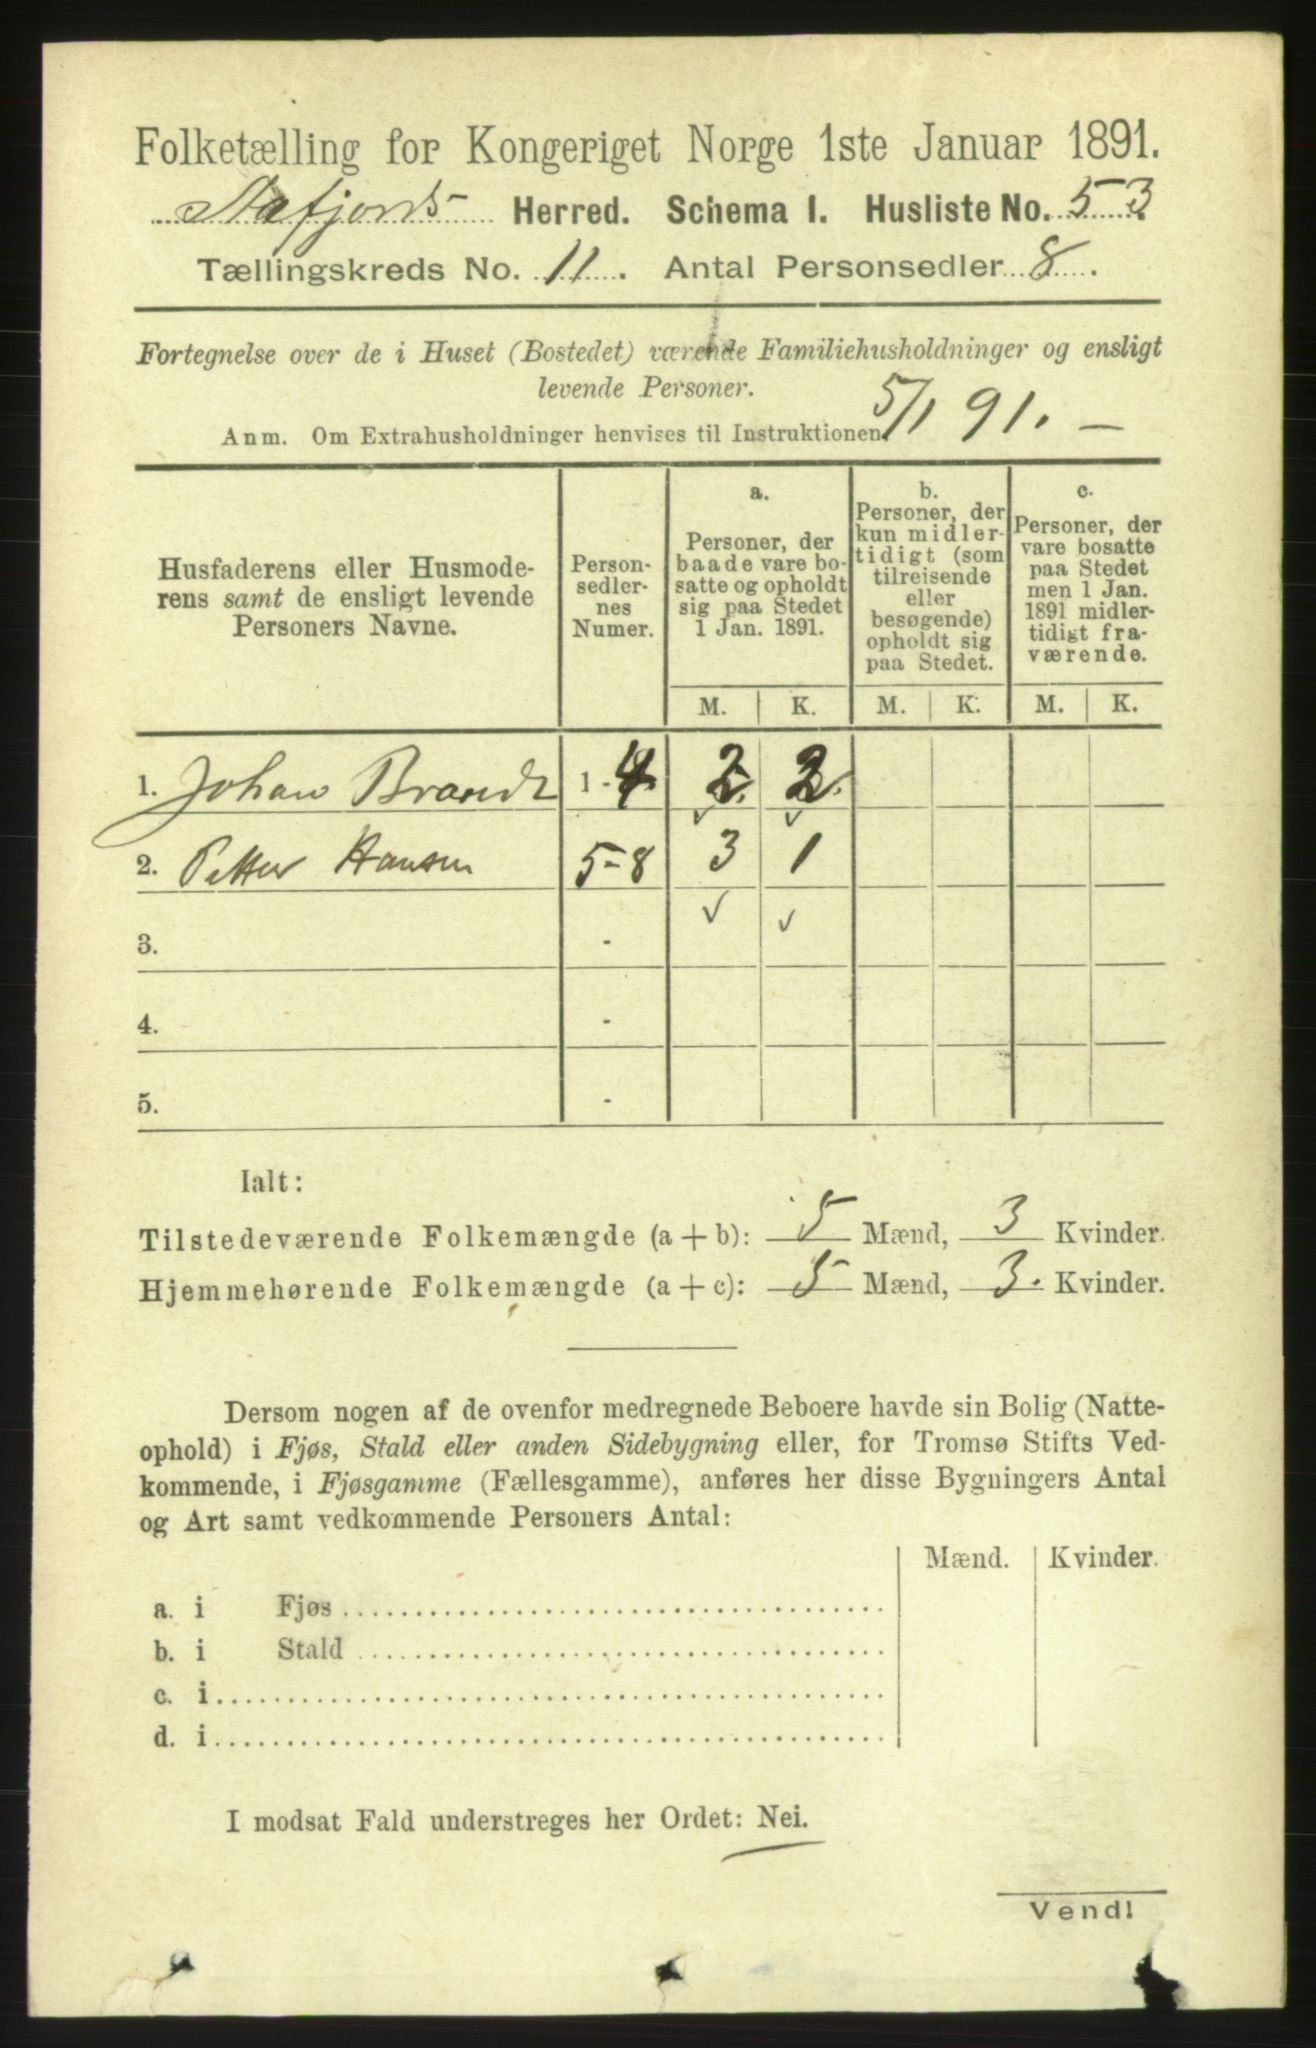 Folketælling for Kongeriget Norge 1ste Januar 1891.
Herred. Schema I. Husliste No. 53
Tællingskreds No. 11. Antal Personsedler 8.
Fortegnelse over de i Huset (Bostedet) værende Familiehusholdninger og ensligt
levende Personer.
Anm. Om Extrahusholdninger henvises til Instruktionen. 5/1 91. —
Husfaderens eller Husmode-
rens samt de ensligt levende
Personers Navne.
Person-
sedler-
nes
Numer.
a.
Personer, der
baade vare bo-
satte og opholdt
sig paa Stedet
1 Jan. 1891.
b.
Personer, der
kun midler-
tidigt (som
tilreisende
eller
besøgende)
opholdt sig
paa Stedet.
c.
Personer, der
vare bosatte
paa Stedet
men 1 Jan.
1891 midler-
tidigt fra-
værende.
M. K. M. K. M. K.
1. Johan Brandt 1-4 2 2
2. Petter Hansen 5-8 3 1
3. -
4. -
5. -
Ialt:
Tilstedeværende Folkemængde (a + b): 5 Mænd, 3 Kvinder.
Hjemmehørende Folkemængde (a + c): 5 Mænd, 3. Kvinder.
Dersom nogen af de ovenfor medregnede Beboere havde sin Bolig (Natte-
ophold) i Fjøs, Stald eller anden Sidebygning eller, for Tromsø Stifts Ved-
kommende, i Fjøsgamme (Fællesgamme), anføres her disse Bygningers Antal
og Art samt vedkommende Personers Antal:
Mænd. Kvinder.
a. i Fjøs
b. i Stald
c. i
d. i
I modsat Fald understreges her Ordet: Nei.
Vend!